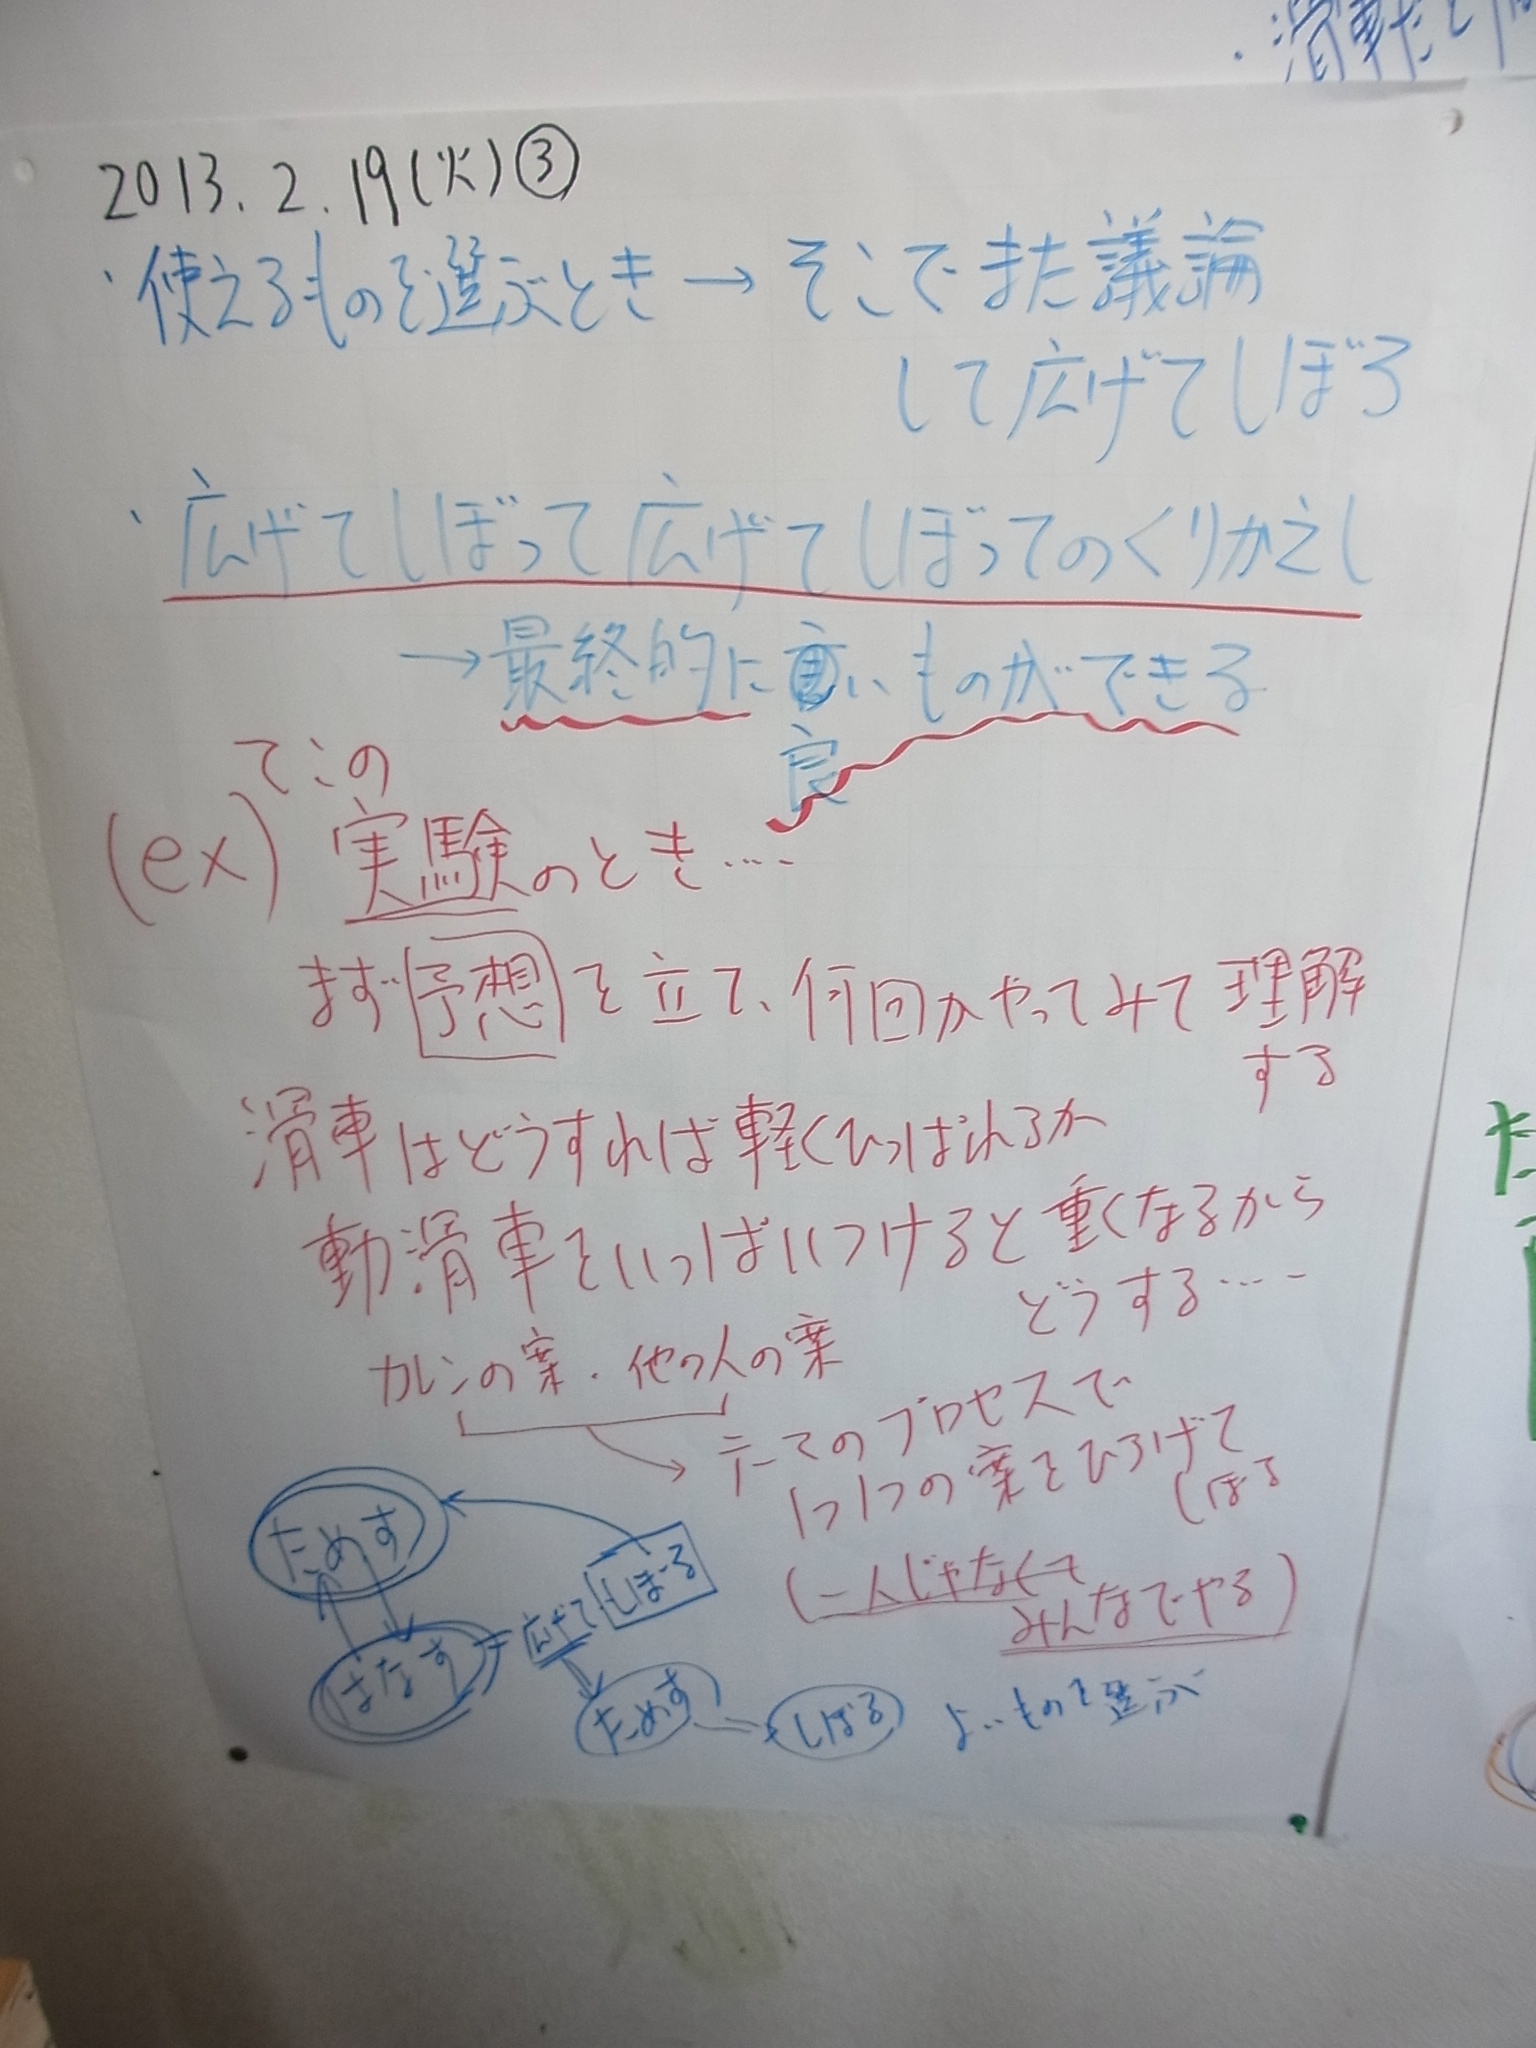 ・滑車だと
2013.2.19(火)③
・使えるものを選ぶとき→そこでまた議論
して広げてしぼろ
・広げてしぼって広げてしぼってのくりかえし
→最終的に いものができる
良
てこの
(ex) 実験のとき…
まず予想を立て、何回かやってみて理解
する
滑車はどうすれば軽くひっぱれるか
動滑車をいっぱいつけると重くなるから
どうする…
カレンの案・他の人の案
テーマのプロセスで
1つ1つの案をひろげて
しぼる
(一人じゃなくて
みんなでやる)
ためす
しぼる
広げて
はなす
ためす
しぼる
よいものを選ぶ
た